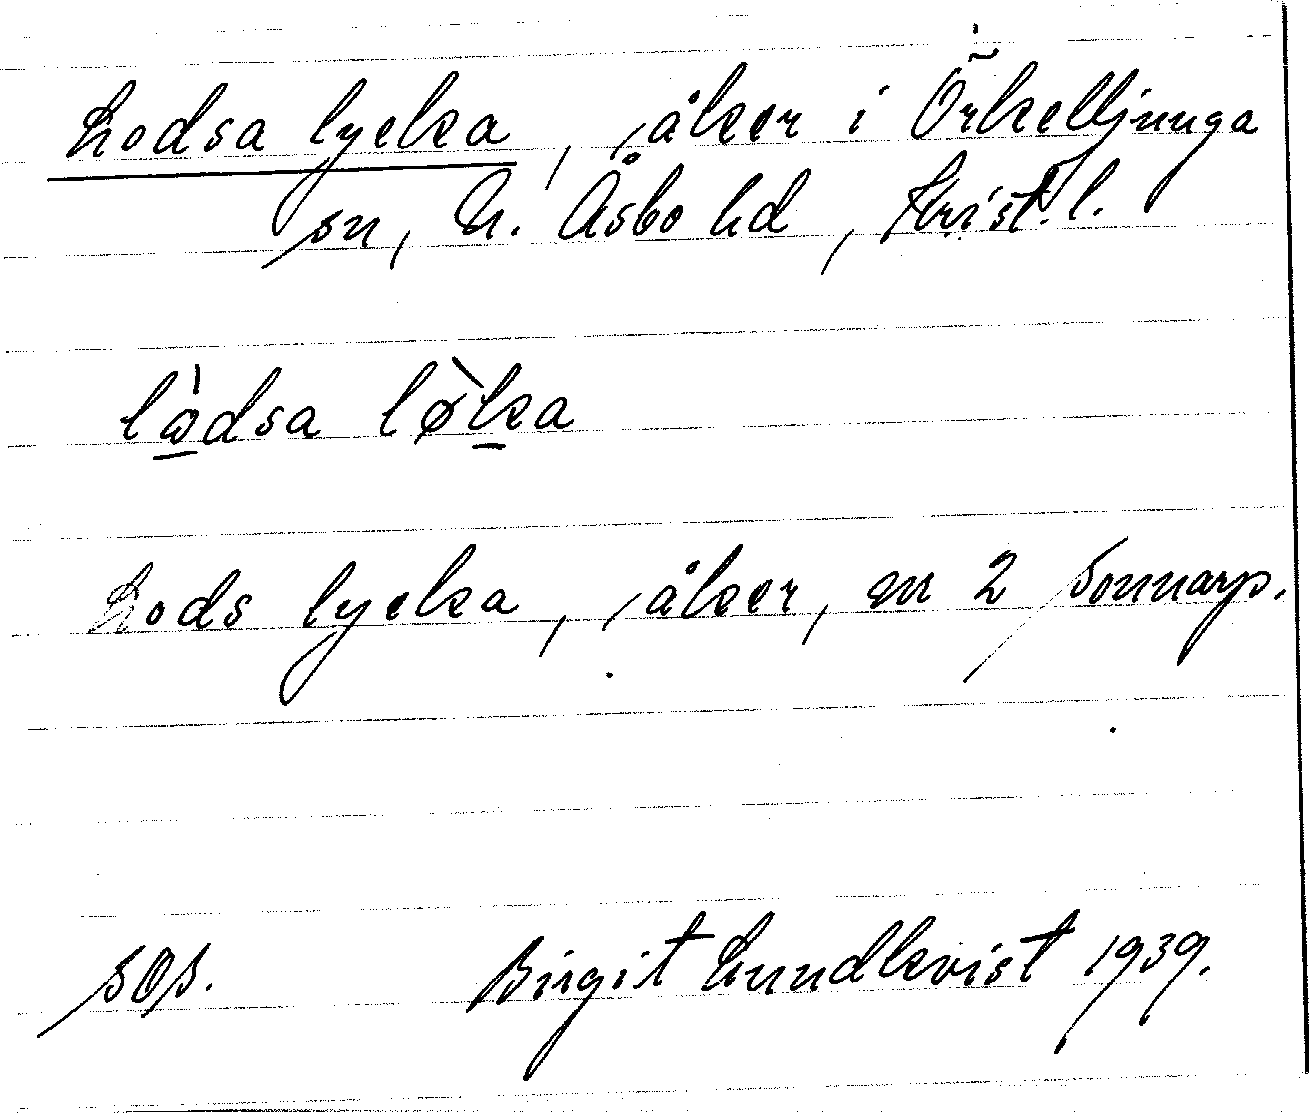 Lodsa lycka, åker i Örkelljunga
sn, N. Åsbo hd, Krist. l.
lødsa løka
Lods lycka, åker, nr 2 Sonnarp.
sos. Birgit Lundkvist 1939.